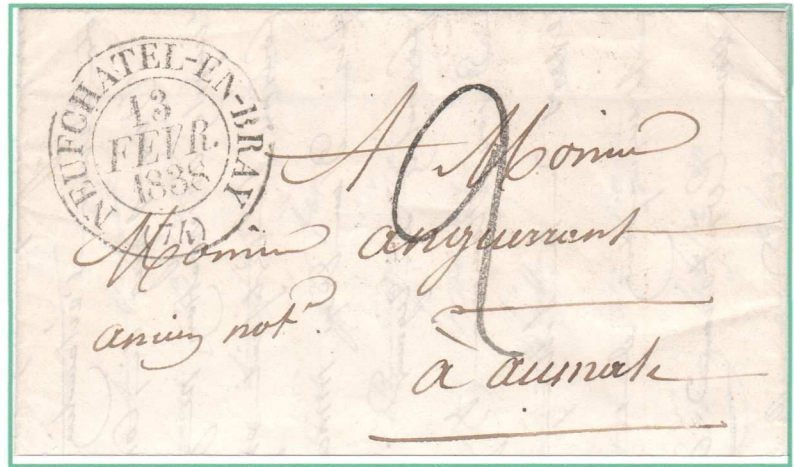 NEUFCHATEL-EN-BRAY
13
FEVR.
1838
(74)
A Monsieur
Monsieur anguerrent
ancien not.re
2
à aumale